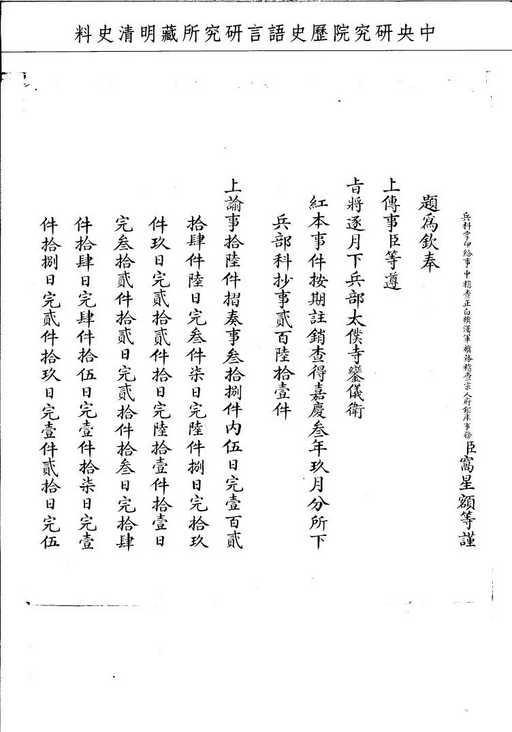 中央研究院歷史語言研究所藏明清史料
兵科掌印給事中稽查正白旗漢軍旗務稽查宗人府銀庫事務臣窩星額等謹
題為欽奉
上傳事臣等遵
旨將逐月下兵部太僕寺鑾儀衛
紅本事件按期註銷查得嘉慶叁年玖月分所下
兵部科抄事貳百陸拾壹件
上諭事拾陸件摺奏事叁拾捌件內伍日完壹百貳
拾肆件陸日完叁件柒日完陸件捌日完拾玖
件玖日完貳拾貳件拾日完陸拾壹件拾壹日
完叁拾貳件拾貳日完貳拾件拾叁日完拾肆
件拾肆日完肆件拾伍日完壹件拾柒日完壹
件拾捌日完貳件拾玖日完壹件貳拾日完伍